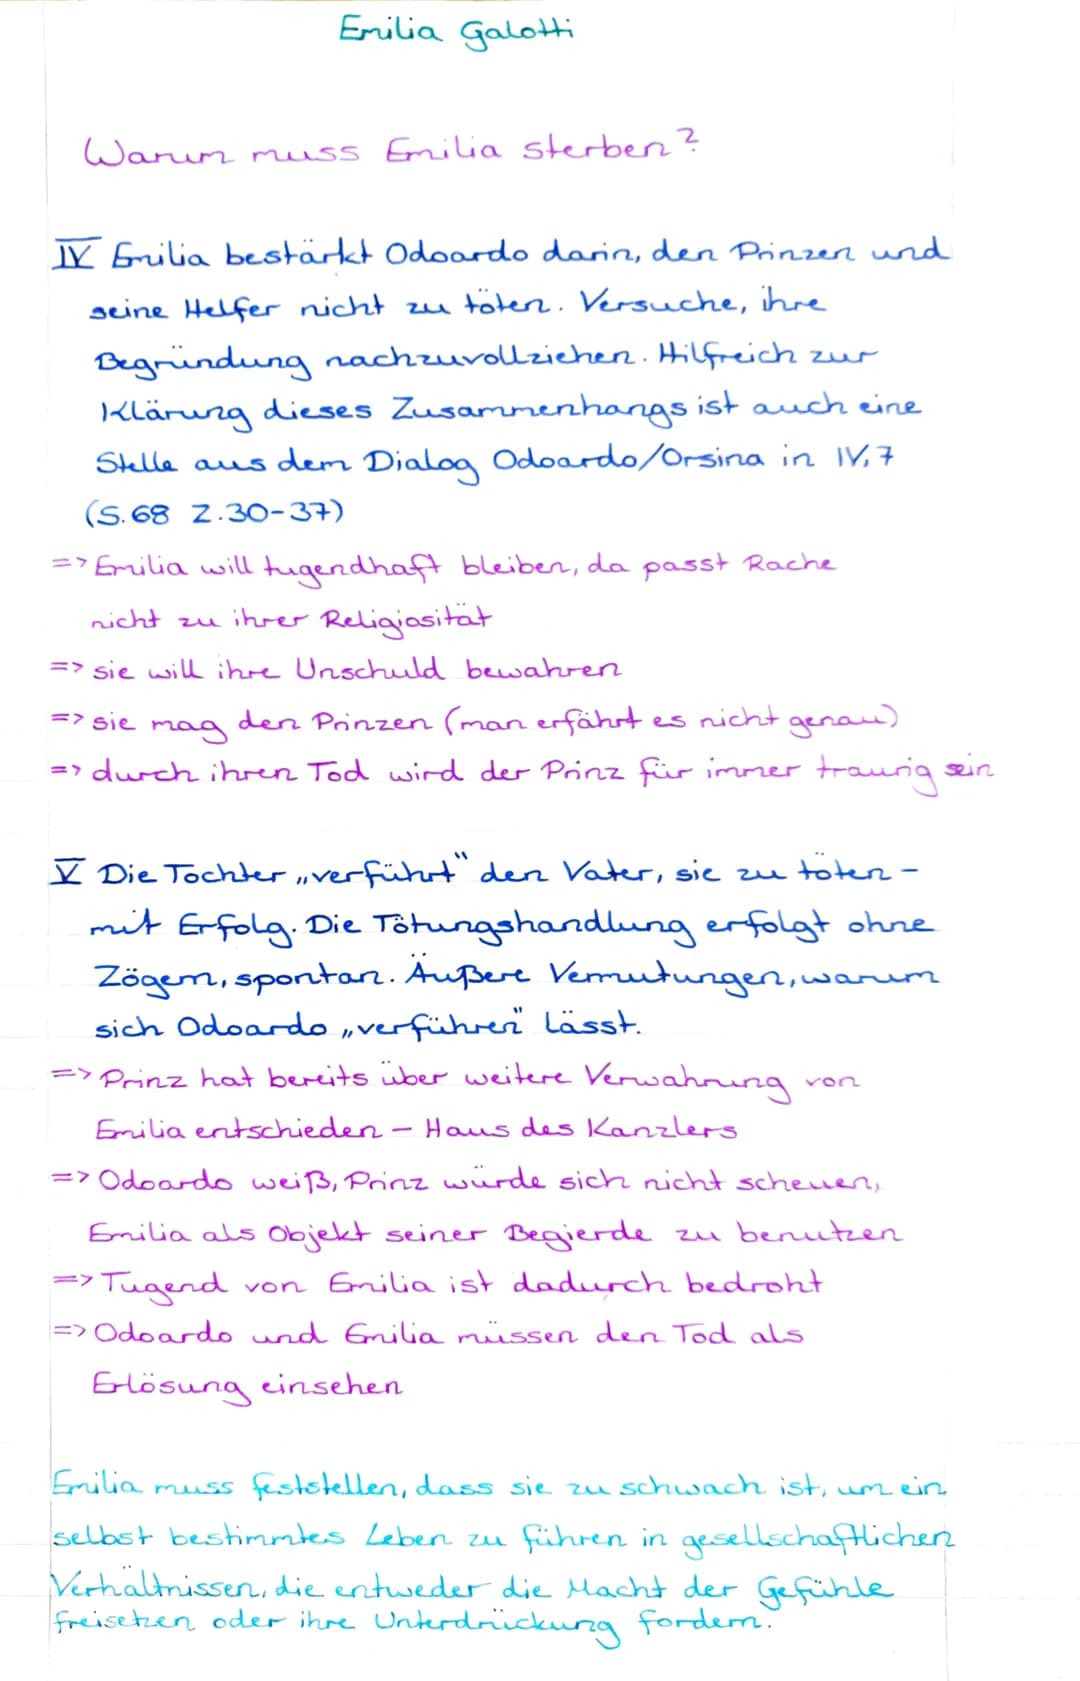 Emilia Galotti
Warum muss Emilia sterben?
IV Emilia bestärkt Odoardo darin, den Prinzen und
seine Helfer nicht zu töten. Versuche, ihre
Begründung nachzuvollziehen. Hilfreich zur
Klärung dieses Zusammenhangs ist auch eine
Stelle aus dem Dialog Odoardo/Orsina in IV,7
(S.68 Z.30-37)
=> Emilia will tugendhaft bleiben, da passt Rache
nicht zu ihrer Religiosität
=> sie will ihre Unschuld bewahren
=> sie mag den Prinzen (man erfährt es nicht genau)
=> durch ihren Tod wird der Prinz für immer traurig sein
V Die Tochter „verführt" den Vater, sie zu töten -
mit Erfolg. Die Tötungshandlung erfolgt ohne
Zögern, spontan. Äußere Vermutungen, warum
sich Odoardo „verführen" lässt.
=> Prinz hat bereits über weitere Verwahrung von
Emilia entschieden - Haus des Kanzlers
=> Odoardo weiß, Prinz würde sich nicht scheuen,
Emilia als Objekt seiner Begierde zu benutzen
=> Tugend von Emilia ist dadurch bedroht
=> Odoardo und Emilia müssen den Tod als
Erlösung einsehen
Emilia muss feststellen, dass sie zu schwach ist, um ein
selbst bestimmtes Leben zu führen in gesellschaftlichen
Verhältnissen, die entweder die Macht der Gefühle
freisetzen oder ihre Unterdrückung fordern.